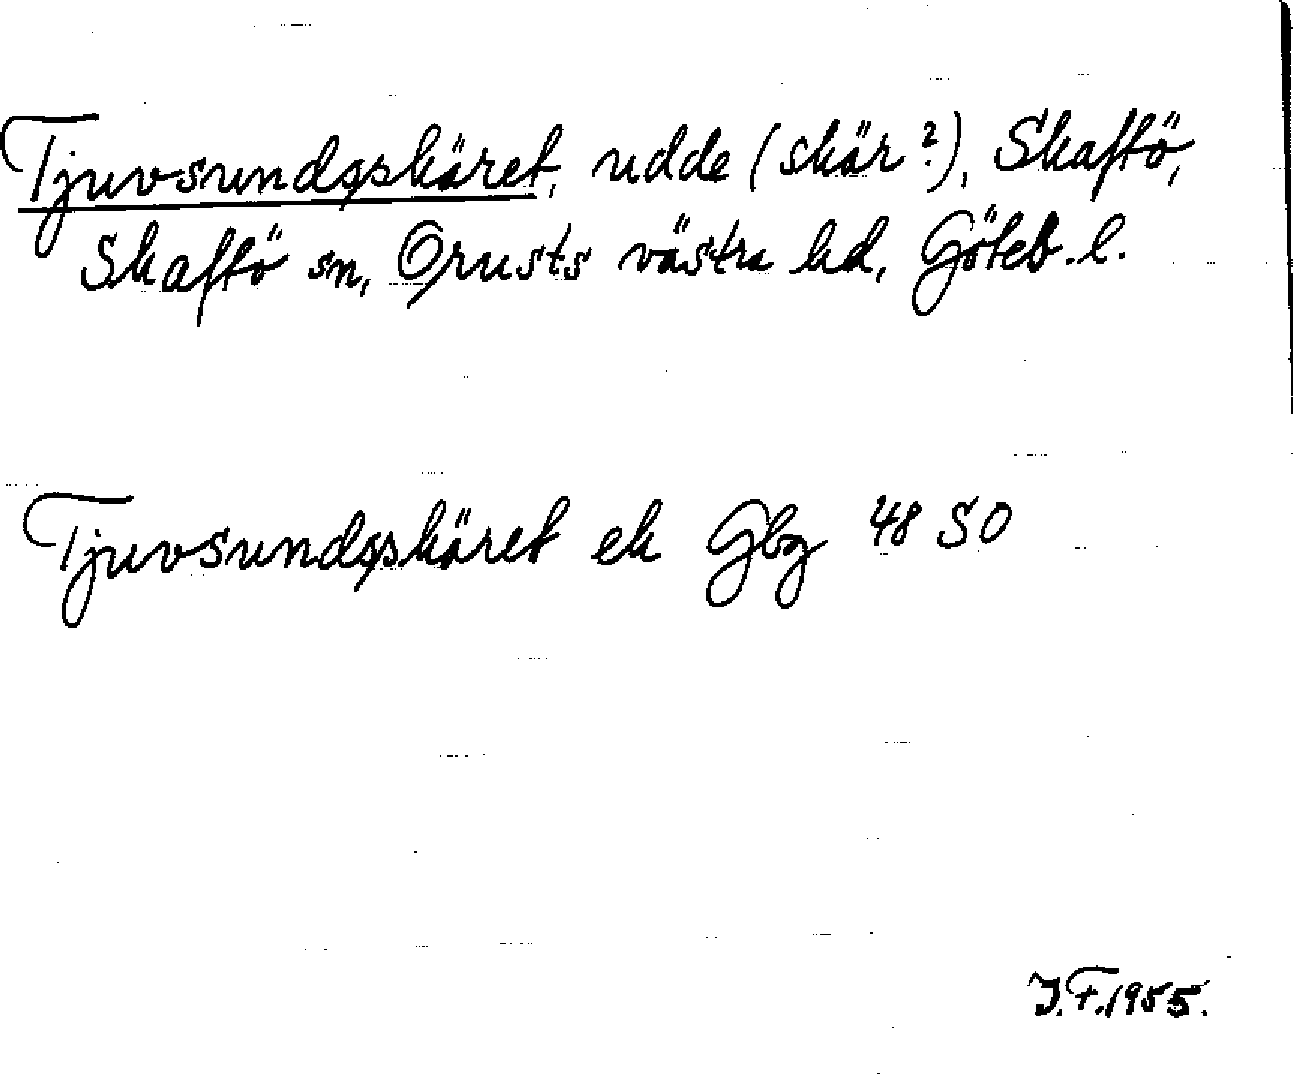 Tjuvsundsskäret, udde (skär?), Skaftö,
Skaftö sn, Orusts västra hd, Göteb. l.
Tjuvsundsskäret ek Gbg 48 SO
J.F. 1955.